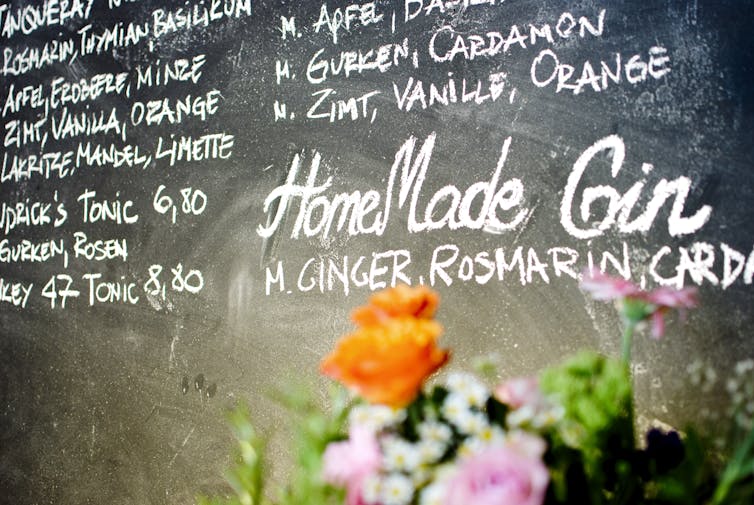 TANQUERAY
ROSMARIN, THYMIAN BASILIKUM
APFEL, ERDBEERE, MINZE
ZIMT, VANILLA, ORANGE
LAKRITZE, MANDEL, LIMETTE
NDRICK'S TONIC 6,80
GURKEN, ROSEN
NKEY 47 TONIC 8,80
M. APFEL,
M. GURKEN, CARDAMON
M. ZIMT, VANILLE, ORANGE
HomeMade Gin
M. GINGER, ROSMARIN, CARDA